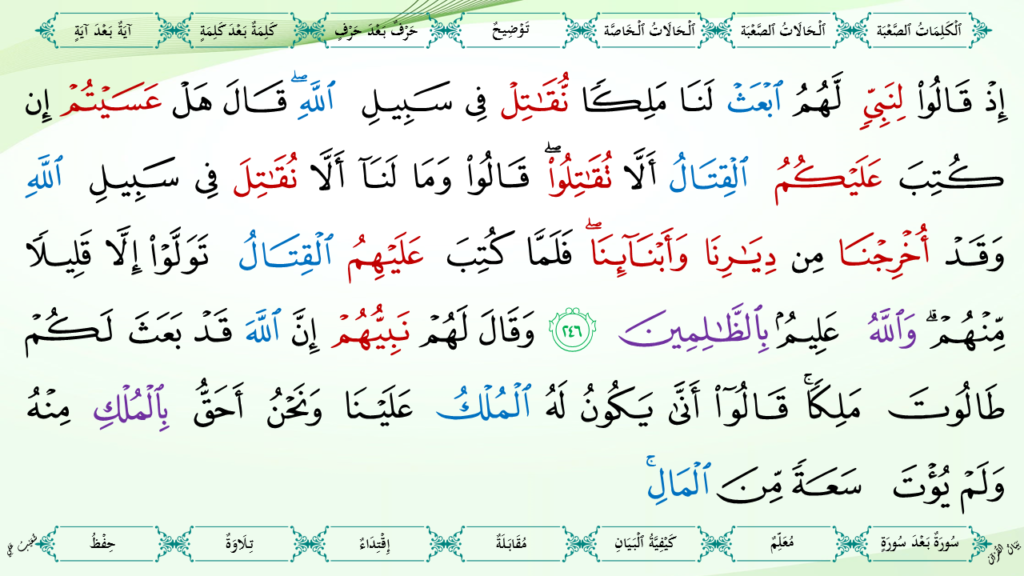 اَلْكَلِمَاتُ الصَّعْبَة اَلْحَالَاتُ الصَّعْبَة اَلْحَالَاتُ الْخَاصَّة تَوْضِيحٌ حَرْفٌ بَعْدَ حَرْفٍ كَلِمَةٌ بَعْدَ كَلِمَةٍ آيَةٌ بَعْدَ آيَةٍ
إِذْ قَالُوا۟ لِنَبِىٍّ لَّهُمُ ٱبْعَثْ لَنَا مَلِكًا نُّقَـٰتِلْ فِى سَبِيلِ ٱللَّهِ ۖ قَالَ هَلْ عَسَيْتُمْ إِن
كُتِبَ عَلَيْكُمُ ٱلْقِتَالُ أَلَّا نُقَـٰتِلُوا۟ ۖ قَالُوا۟ وَمَا لَنَآ أَلَّا نُقَـٰتِلَ فِى سَبِيلِ ٱللَّهِ
وَقَدْ أُخْرِجْنَا مِن دِيَـٰرِنَا وَأَبْنَآئِنَا ۖ فَلَمَّا كُتِبَ عَلَيْهِمُ ٱلْقِتَالُ تَوَلَّوْا۟ إِلَّا قَلِيلًا
مِّنْهُمْ ۗ وَٱللَّهُ عَلِيمٌۢ بِٱلظَّـٰلِمِينَ ٢٤٦ وَقَالَ لَهُمْ نَبِيُّهُمْ إِنَّ ٱللَّهَ قَدْ بَعَثَ لَكُمْ
طَالُوتَ مَلِكًا ۚ قَالُوٓا۟ أَنَّىٰ يَكُونُ لَهُ ٱلْمُلْكُ عَلَيْنَا وَنَحْنُ أَحَقُّ بِٱلْمُلْكِ مِنْهُ
وَلَمْ يُؤْتَ سَعَةً مِّنَ ٱلْمَالِ ۚ
سُورَةٌ بَعْدَ سُورَةٍ مُعَلِّمٌ كَيْفِيَّةُ الْبَيَانِ مُقَابَلَةٌ اِقْتِدَاءٌ تِلَاوَةٌ حِفْظٌ
بَيَانُ القُرآن